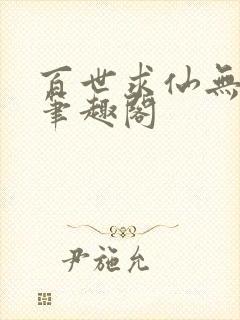 百世求仙無
筆趣閣
尹施允